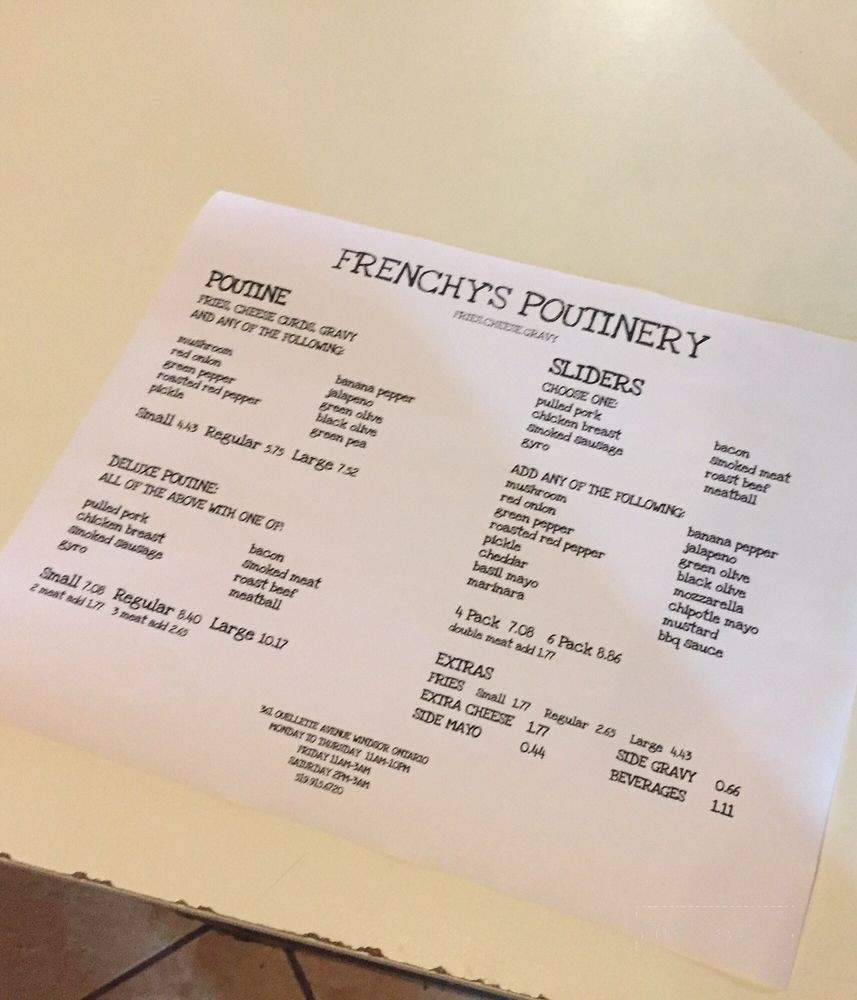 FRENCHY'S POUTINERY
FRIES.CHEESE.GRAVY
POUTINE
FRIES, CHEESE CURDS, GRAVY
AND ANY OF THE FOLLOWING:
mushroom
red onion
green pepper
roasted red pepper
pickle
banana pepper
jalapeno
green olive
black olive
green pea
Small 4.43 Regular 5.75 Large 7.52
DELUXE POUTINE:
ALL OF THE ABOVE WITH ONE OF:
pulled pork
chicken breast
smoked sausage
gyro
bacon
smoked meat
roast beef
meatball
Small 7.08 Regular 8.40 Large 10.17
2 meat add 1.77 3 meat add 2.65
SLIDERS
CHOOSE ONE:
pulled pork
chicken breast
smoked sausage
gyro
bacon
smoked meat
roast beef
meatball
ADD ANY OF THE FOLLOWING:
mushroom
red onion
green pepper
roasted red pepper
pickle
cheddar
basil mayo
marinara
banana pepper
jalapeno
green olive
black olive
mozzarella
chipotle mayo
mustard
bbq sauce
4 Pack 7.08 6 Pack 8.86
double meat add 1.77
EXTRAS
FRIES Small 1.77 Regular 2.65 Large 4.43
EXTRA CHEESE 1.77
SIDE MAYO 0.44
SIDE GRAVY 0.66
BEVERAGES 1.11
361 OUELLETTE AVENUE WINDSOR ONTARIO
MONDAY TO THURSDAY 11AM-10PM
FRIDAY 11AM-3AM
SATURDAY 2PM-3AM
519.915.6720